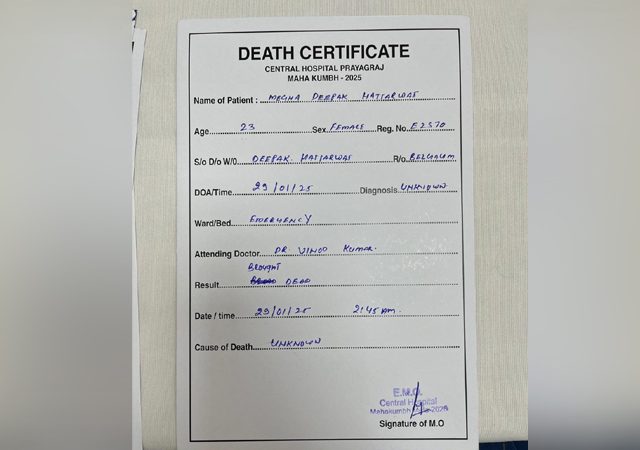 DEATH CERTIFICATE
CENTRAL HOSPITAL PRAYAGRAJ
MAHA KUMBH - 2025
Name of Patient : MEGHA DEEPAK HATTARWAT
Age 23 Sex FEMALE Reg. No. E2570
S/o D/o W/0 DEEPAK HATTARWAT R/o BELGAUM
DOA/Time 29/01/25 Diagnosis UNKNOWN
Ward/Bed EMERGENCY
Attending Doctor DR VINOD KUMAR.
BROUGHT
Result DEAD
Date / time 29/01/25 2:45 AM.
Cause of Death UNKNOWN
E.M.O.
Central Hospital
Mahakumbh 2025
Signature of M.O